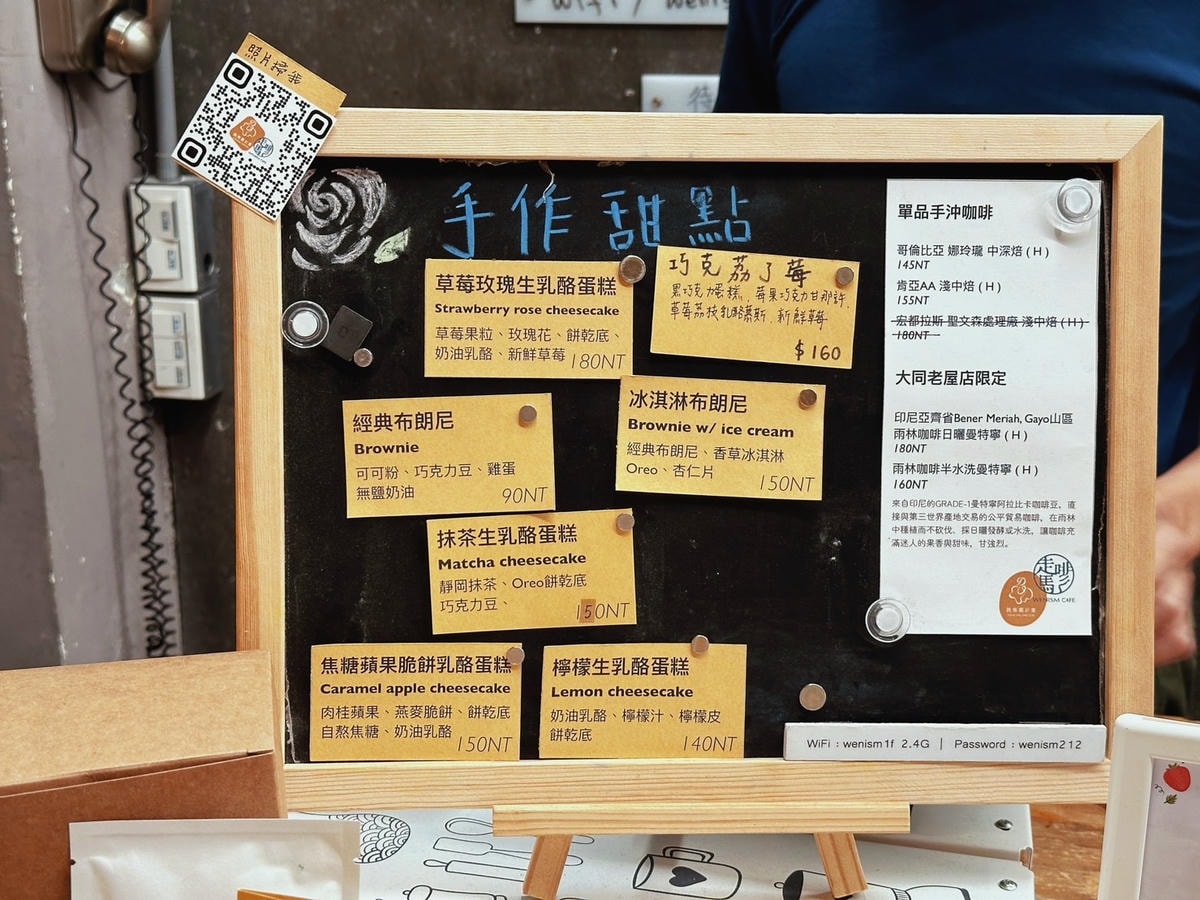 WiFi / wenis
待
照片掃我
手作甜點
草莓玫瑰生乳酪蛋糕
Strawberry rose cheesecake
草莓果粒、玫瑰花、餅乾底、
奶油乳酪、新鮮草莓
180NT
巧克荔了莓
黑巧克力蛋糕、莓果巧克力甘那許、
草莓荔枝乳酪慕斯、新鮮草莓
$160
經典布朗尼
Brownie
可可粉、巧克力豆、雞蛋
無鹽奶油
90NT
冰淇淋布朗尼
Brownie w/ ice cream
經典布朗尼、香草冰淇淋
Oreo、杏仁片
150NT
抹茶生乳酪蛋糕
Matcha cheesecake
靜岡抹茶、Oreo餅乾底
巧克力豆、
150NT
焦糖蘋果脆餅乳酪蛋糕
Caramel apple cheesecake
肉桂蘋果、燕麥脆餅、餅乾底
自熬焦糖、奶油乳酪
150NT
檸檬生乳酪蛋糕
Lemon cheesecake
奶油乳酪、檸檬汁、檸檬皮
餅乾底
140NT
單品手沖咖啡
哥倫比亞 娜玲瓏 中深焙 ( H )
145NT
肯亞AA 淺中焙 ( H )
155NT
宏都拉斯 聖文森處理廠 淺中焙 ( H )
180NT
大同老屋店限定
印尼亞齊省Bener Meriah, Gayo山區
雨林咖啡日曬曼特寧 ( H )
180NT
雨林咖啡半水洗曼特寧 ( H )
160NT
來自印尼的GRADE-1曼特寧阿拉比卡咖啡豆，直
接與第三世界產地交易的公平貿易咖啡，在雨林
中種植而不砍伐、採日曬發酵或水洗，讓咖啡充
滿迷人的果香與甜味，甘強烈。
走馬啡
WENISM CAFE
WiFi : wenism1f 2.4G | Password : wenism212